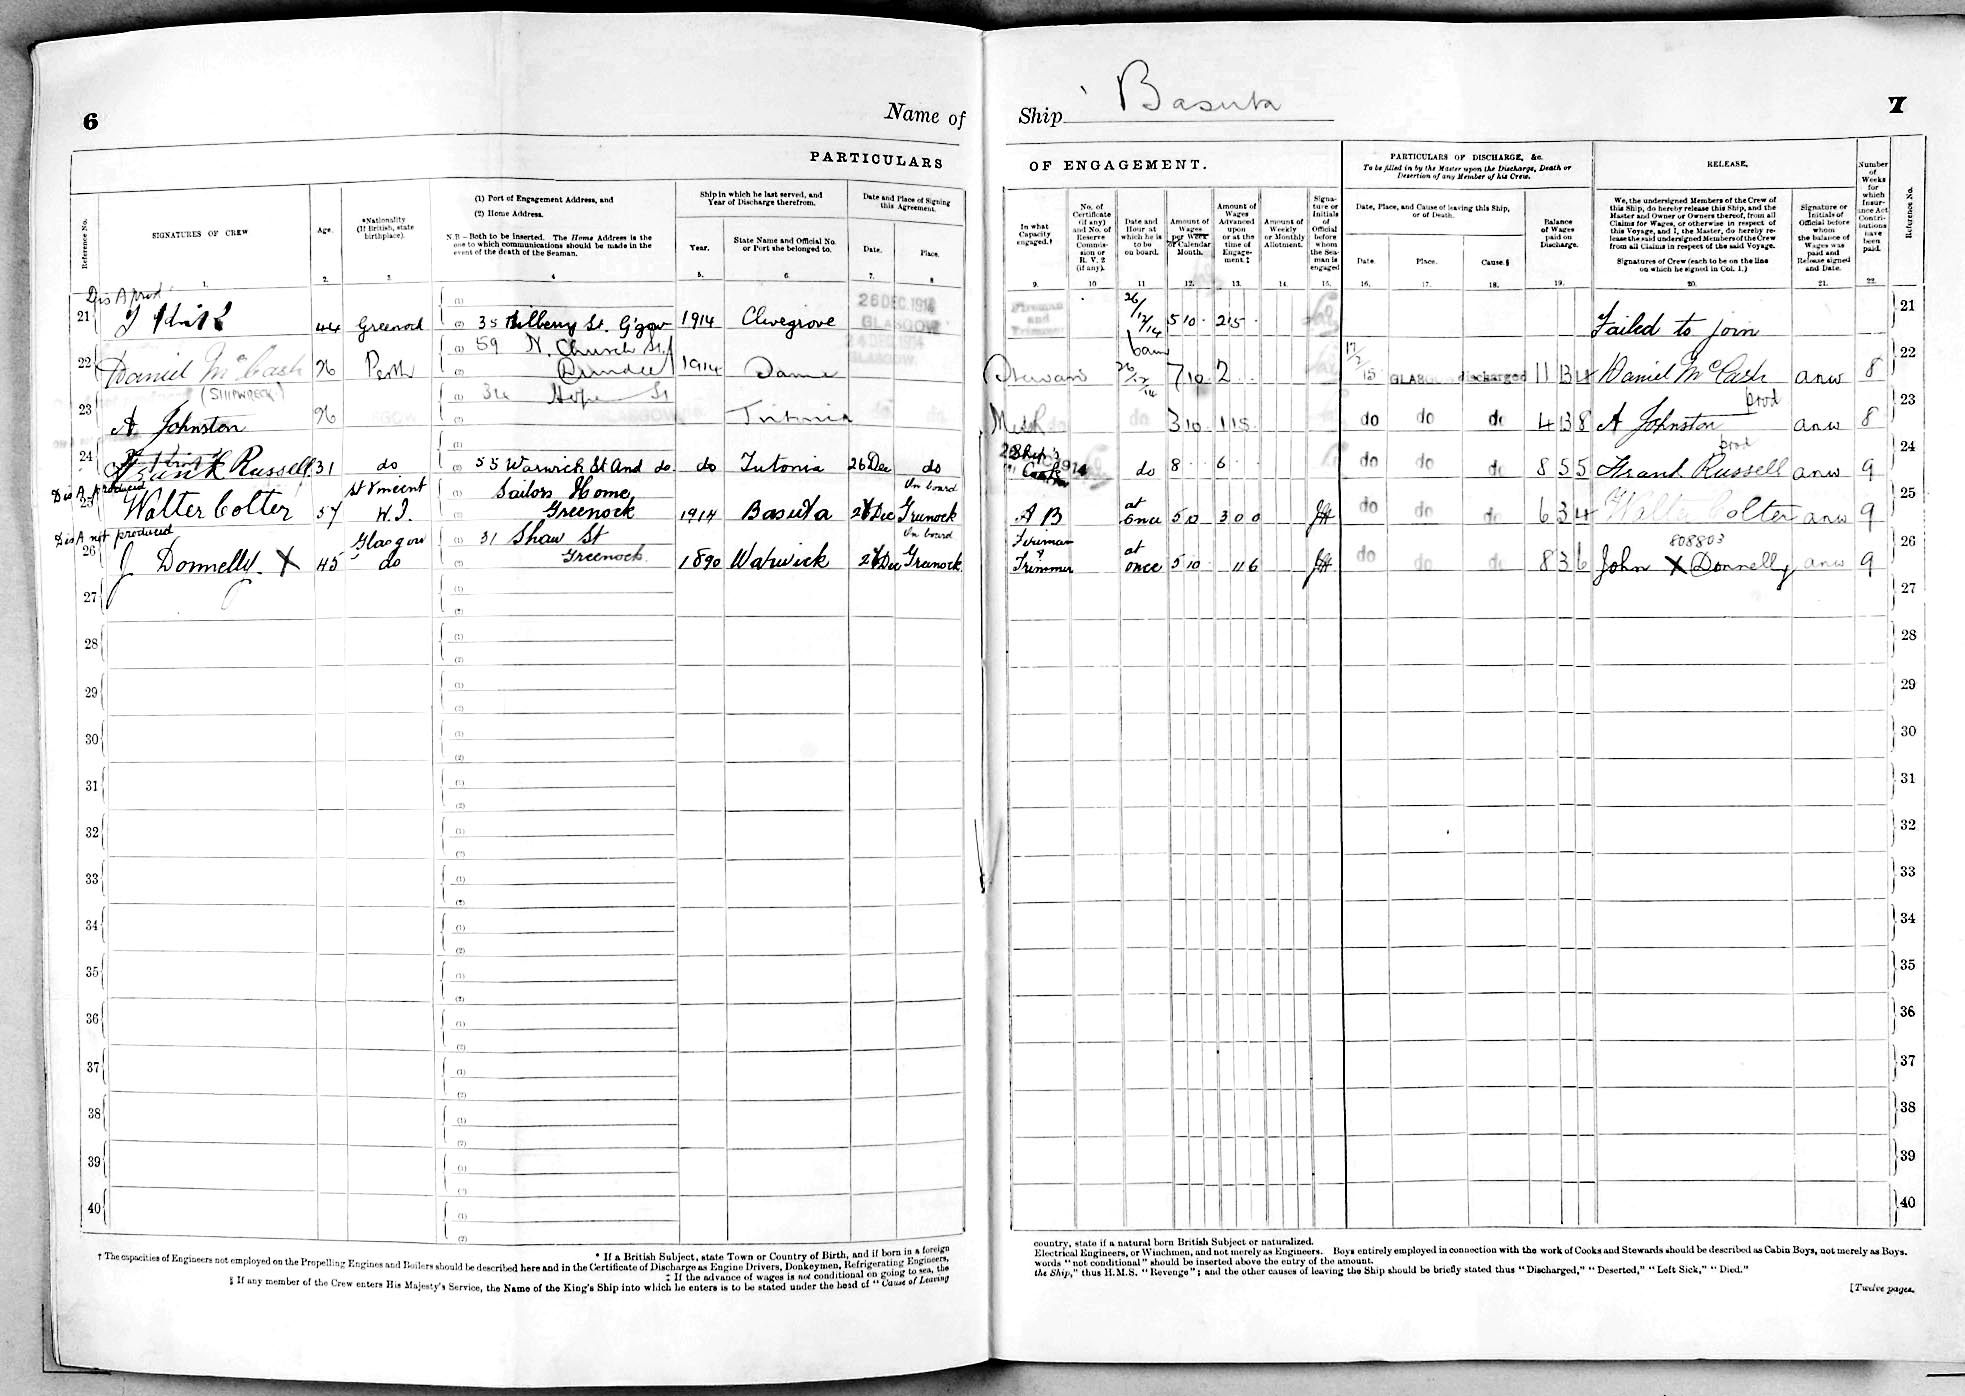 6
Name of
PARTICULARS
Reference No.
SIGNATURES OF CREW
Age.
*Nationality
(If British, state
birthplace).
(1) Port of Engagement Address, and
(2) Home Address.
N.B.—Both to be inserted. The Home Address is the
one to which communications should be made in the
event of the death of the Seaman.
Ship in which he last served, and
Year of Discharge therefrom.
Year.
State Name and Official No.
or Port she belonged to.
Date and Place of Signing
this Agreement.
Date.
Place.
1. 2. 3. 4 5. 6. 7. 8
Dis A prod
21 44 Greenock 35 St. G'gow 1914 Clivegrove 26 DEC. 1914 GLASGOW
22 Daniel McCash 26 Perth 59 N. Church St. Dundee 1914 24 DEC. 1914 GLASGOW.
(SHIPWRECK)
23 A Johnston 26 Hope St
24 Frank Russell 31 do 55 Warwick St And do. do Tutonia 26 Dec do
Dis A produced
25 Walter Colter 57 St Vincent W.I. Sailors Home, Greenock 1914 Basuta 26 Dec On board Greenock
Dis A not produced
26 J Donnelly. X 45 Glasgow do 31 Shaw St Greenock 1890 Warwick 26 Dec On board Greenock
27
28
29
30
31
32
33
34
35
36
37
38
39
40
* If a British Subject, state Town or Country of Birth, and if born in a foreign
† The capacities of Engineers not employed on the Propelling Engines and Boilers should be described here and in the Certificate of Discharge as Engine Drivers, Donkeymen, Refrigerating Engineers,
‡ If the advance of wages is not conditional on going to sea, the
§ If any member of the Crew enters His Majesty's Service, the Name of the King's Ship into which he enters is to be stated under the head of "Cause of Leaving
Ship Basuta
7
OF ENGAGEMENT.
In what
Capacity
engaged.†
No. of
Certificate
(if any)
and No. of
Reserve
Commis-
sion or
R. V. 2
(if any).
Date and
Hour at
which he is
to be
on board.
Amount of
Wages
per Week
or Calendar
Month.
Amount of
Wages
Advanced
upon
or at the
time of
Engage-
ment.‡
Amount of
Weekly
or Monthly
Allotment.
Signa-
ture or
Initials
of
Official
before
whom
the Sea-
man is
engaged
PARTICULARS OF DISCHARGE, &c.
To be filled in by the Master upon the Discharge, Death or
Desertion of any Member of his Crew.
Date, Place, and Cause of leaving this Ship,
or of Death.
Date.
Place.
Cause.§
Balance
of Wages
paid on
Discharge.
RELEASE.
We, the undersigned Members of the Crew of
this Ship, do hereby release this Ship, and the
Master and Owner or Owners thereof, from all
Claims for Wages, or otherwise in respect of
this Voyage, and I, the Master, do hereby re-
lease the said undersigned Members of the Crew
from all Claims in respect of the said Voyage.
Signatures of Crew (each to be on the line
on which he signed in Col. 1.)
Signature or
Initials of
Official before
whom
the balance of
Wages was
paid and
Release signed
and Date.
Number
of
Weeks
for
which
Insur-
ance Act
Contri-
butions
have
been
paid.
Reference No.
9. 10 11 12. 13. 14. 15. 16. 17. 18. 19. 20. 21. 22.
Fireman and Trimmer 26/12/14 5 10 2 15 Failed to join 21
6 am 26/12/14 7 10 2 17/2 15 GLASGOW discharged 11 13 4 Daniel McCash anw 8 22
3 10 1 15 do do do 4 13 8 A Johnston prod anw 8 23
Ship's Cook do 8 6 do do do 8 5 5 Frank Russell prod anw 9 24
A B at once 5 10 3 0 0 do do do 6 3 4 Walter Colter anw 9 25
808803
Fireman & Trimmer at once 5 10 do do do 8 3 6 John X Donnelly anw 9 26
27
28
29
30
31
32
33
34
35
36
37
38
39
40
country, state if a natural born British Subject or naturalized.
Electrical Engineers, or Winchmen, and not merely as Engineers. Boys entirely employed in connection with the work of Cooks and Stewards should be described as Cabin Boys, not merely as Boys.
words "not conditional" should be inserted above the entry of the amount.
the Ship," thus H.M.S. "Revenge"; and the other causes of leaving the Ship should be briefly stated thus "Discharged," "Deserted," "Left Sick," "Died."
[Twelve pages.